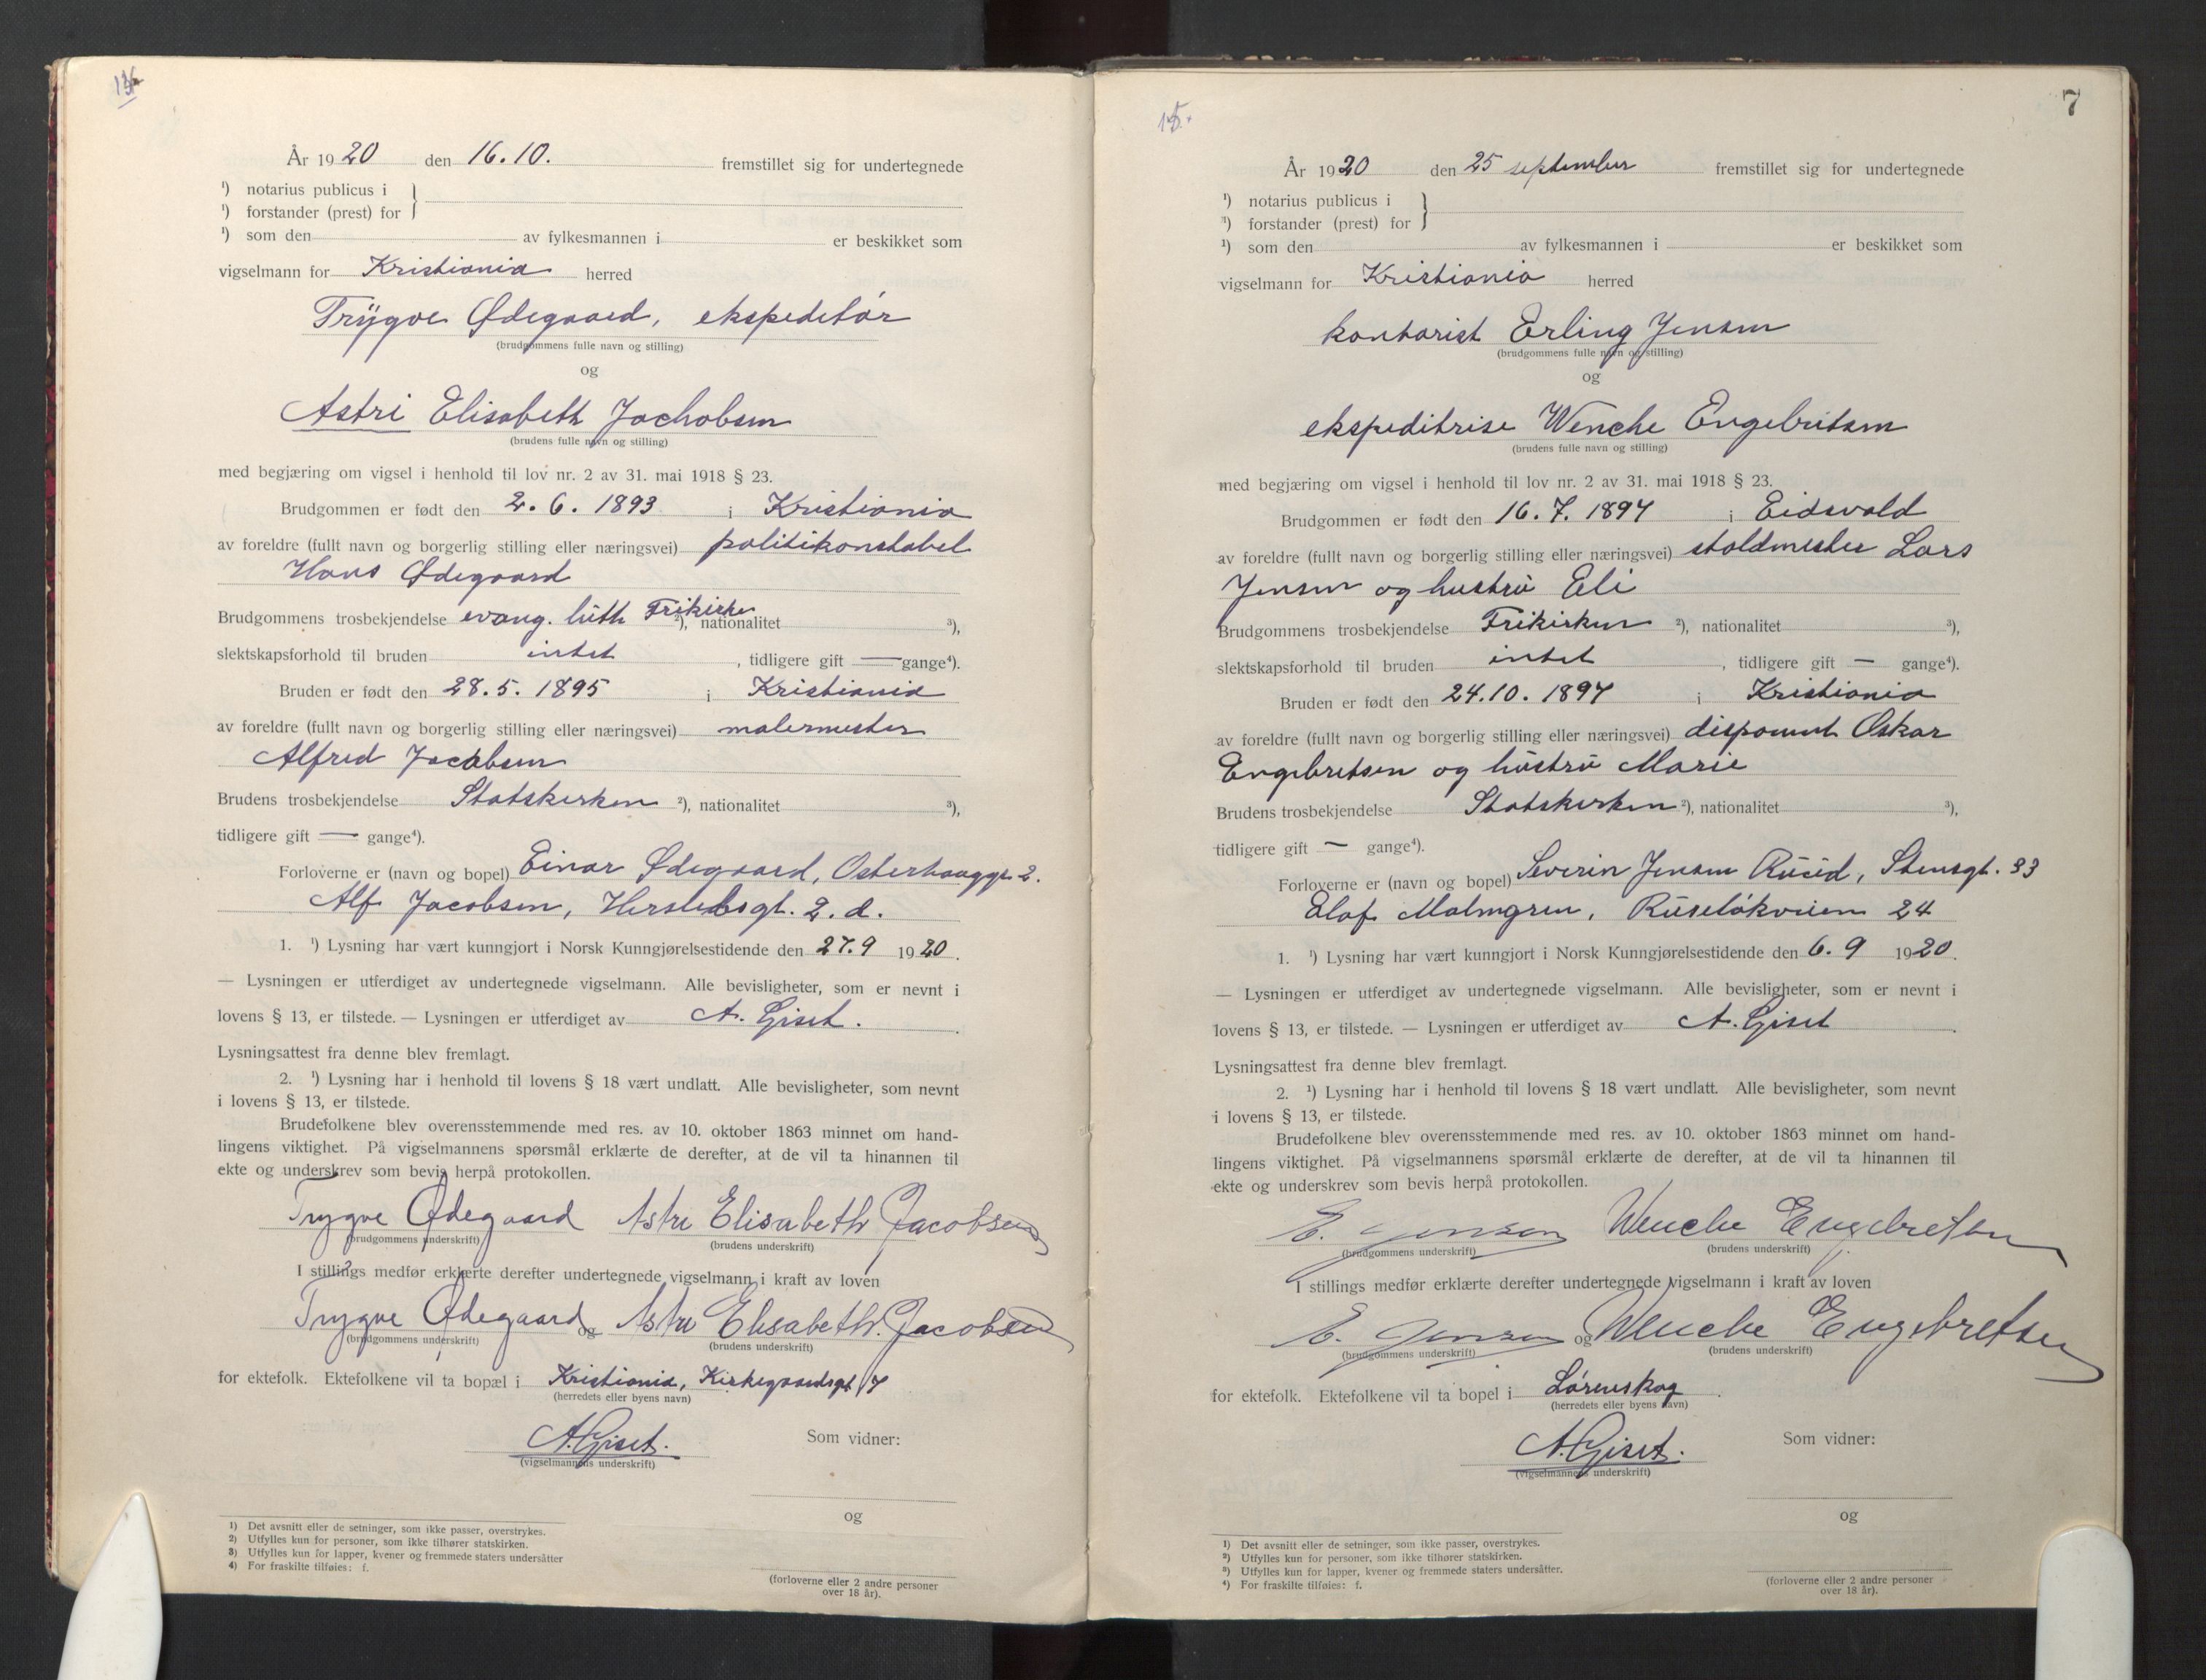 År 1920 den 16.10. fremstillet sig for undertegnede
¹) notarius publicus i
¹) forstander (prest) for
¹) som den av fylkesmannen i er beskikket som
vigselmann for Kristiania herred
Trygve Ødegaard, ekspeditør
(brudgommens fulle navn og stilling)
og
Astri Elisabeth Jachobsen
(brudens fulle navn og stilling)
med begjæring om vigsel i henhold til lov nr. 2 av 31. mai 1918 § 23.
Brudgommen er født den 2.6.1893 i Kristiania
av foreldre (fullt navn og borgerlig stilling eller næringsvei) politikonstabel
Hans Ødegaard
Brudgommens trosbekjendelse evang. luth Frikirke ²), nationalitet ³),
slektskapsforhold til bruden intet, tidligere gift — gange⁴).
Bruden er født den 28.5.1895 i Kristiania
av foreldre (fullt navn og borgerlig stilling eller næringsvei) malermester
Alfred Jacobsen
Brudens trosbekjendelse Statskirken ²), nationalitet ³),
tidligere gift — gange⁴).
Forloverne er (navn og bopel) Einar Ødegaard, Osterhausgt. 2.
Alf Jacobsen, Herslebsgt. 2.d.
1. ¹) Lysning har vært kunngjort i Norsk Kunngjørelsestidende den 27.9 1920.
— Lysningen er utferdiget av undertegnede vigselmann. Alle bevisligheter, som er nevnt i
lovens § 13, er tilstede. — Lysningen er utferdiget av A. Giset.
Lysningsattest fra denne blev fremlagt.
2. ¹) Lysning har i henhold til lovens § 18 vært undlatt. Alle bevisligheter, som nevnt
i lovens § 13, er tilstede.
Brudefolkene blev overensstemmende med res. av 10. oktober 1863 minnet om hand-
lingens viktighet. På vigselmannens spørsmål erklærte de derefter, at de vil ta hinannen til
ekte og underskrev som bevis herpå protokollen.
Trygve Ødegaard Astri Elisabeth Jacobsen
(brudgommens underskrift) (brudens underskrift)
I stillings medfør erklærte derefter undertegnede vigselmann i kraft av loven
Trygve Ødegaard og Astri Elisabeth Jacobsen
(brudgommens underskrift) (brudens underskrift)
for ektefolk. Ektefolkene vil ta bopæl i Kristiania, Kirkegaardsgt
(herredets eller byens navn)
A. Giset. Som vidner:
(vigselmannens underskrift)
og
1) Det avsnitt eller de setninger, som ikke passer, overstrykes.
2) Utfylles kun for personer, som ikke tilhører statskirken.
3) Utfylles kun for lapper, kvener og fremmede staters undersåtter
4) For fraskilte tilføies: f.
(forloverne eller 2 andre personer
over 18 år).
7
15.
År 1920 den 25 september fremstillet sig for undertegnede
¹) notarius publicus i
¹) forstander (prest) for
¹) som den av fylkesmannen i er beskikket som
vigselmann for Kristiania herred
kontorist Erling Jensen
(brudgommens fulle navn og stilling)
og
ekspeditrise Wenche Engebretsen
(brudens fulle navn og stilling)
med begjæring om vigsel i henhold til lov nr. 2 av 31. mai 1918 § 23.
Brudgommen er født den 16.7.1897 i Eidsvold
av foreldre (fullt navn og borgerlig stilling eller næringsvei) staldmester Lars
Jensen og hustru Eli
Brudgommens trosbekjendelse Frikirken ²), nationalitet ³),
slektskapsforhold til bruden intet, tidligere gift — gange⁴).
Bruden er født den 24.10.1897 i Kristiania
av foreldre (fullt navn og borgerlig stilling eller næringsvei) disponent Oskar
Engebretsen og hustru Marie
Brudens trosbekjendelse Statskirken ²), nationalitet ³),
tidligere gift — gange⁴).
Forloverne er (navn og bopel) Severin Jensen Stensgt. 33
Olaf Malmgren, Ruseløkveien 24
1. ¹) Lysning har vært kunngjort i Norsk Kunngjørelsestidende den 6.9 1920.
— Lysningen er utferdiget av undertegnede vigselmann. Alle bevisligheter, som er nevnt i
lovens § 13, er tilstede. — Lysningen er utferdiget av A. Giset.
Lysningsattest fra denne blev fremlagt.
2. ¹) Lysning har i henhold til lovens § 18 vært undlatt. Alle bevisligheter, som nevnt
i lovens § 13, er tilstede.
Brudefolkene blev overensstemmende med res. av 10. oktober 1863 minnet om hand-
lingens viktighet. På vigselmannens spørsmål erklærte de derefter, at de vil ta hinannen til
ekte og underskrev som bevis herpå protokollen.
E. Jensen Wenche Engebretsen
(brudgommens underskrift) (brudens underskrift)
I stillings medfør erklærte derefter undertegnede vigselmann i kraft av loven
E. Jensen og Wenche Engebretsen
(brudgommens underskrift) (brudens underskrift)
for ektefolk. Ektefolkene vil ta bopel i Lørenskog.
(herredets eller byens navn)
A. Giset. Som vidner:
(vigselmannens underskrift)
og
1) Det avsnitt eller de setninger, som ikke passer, overstrykes.
²) Utfylles kun for personer, som ikke tilhører statskirken.
³) Utfylles kun for lapper, kvener og fremmede staters undersåtter.
⁴) For fraskilte tilføies: f.
(forloverne eller 2 andre personer
over 18 år).